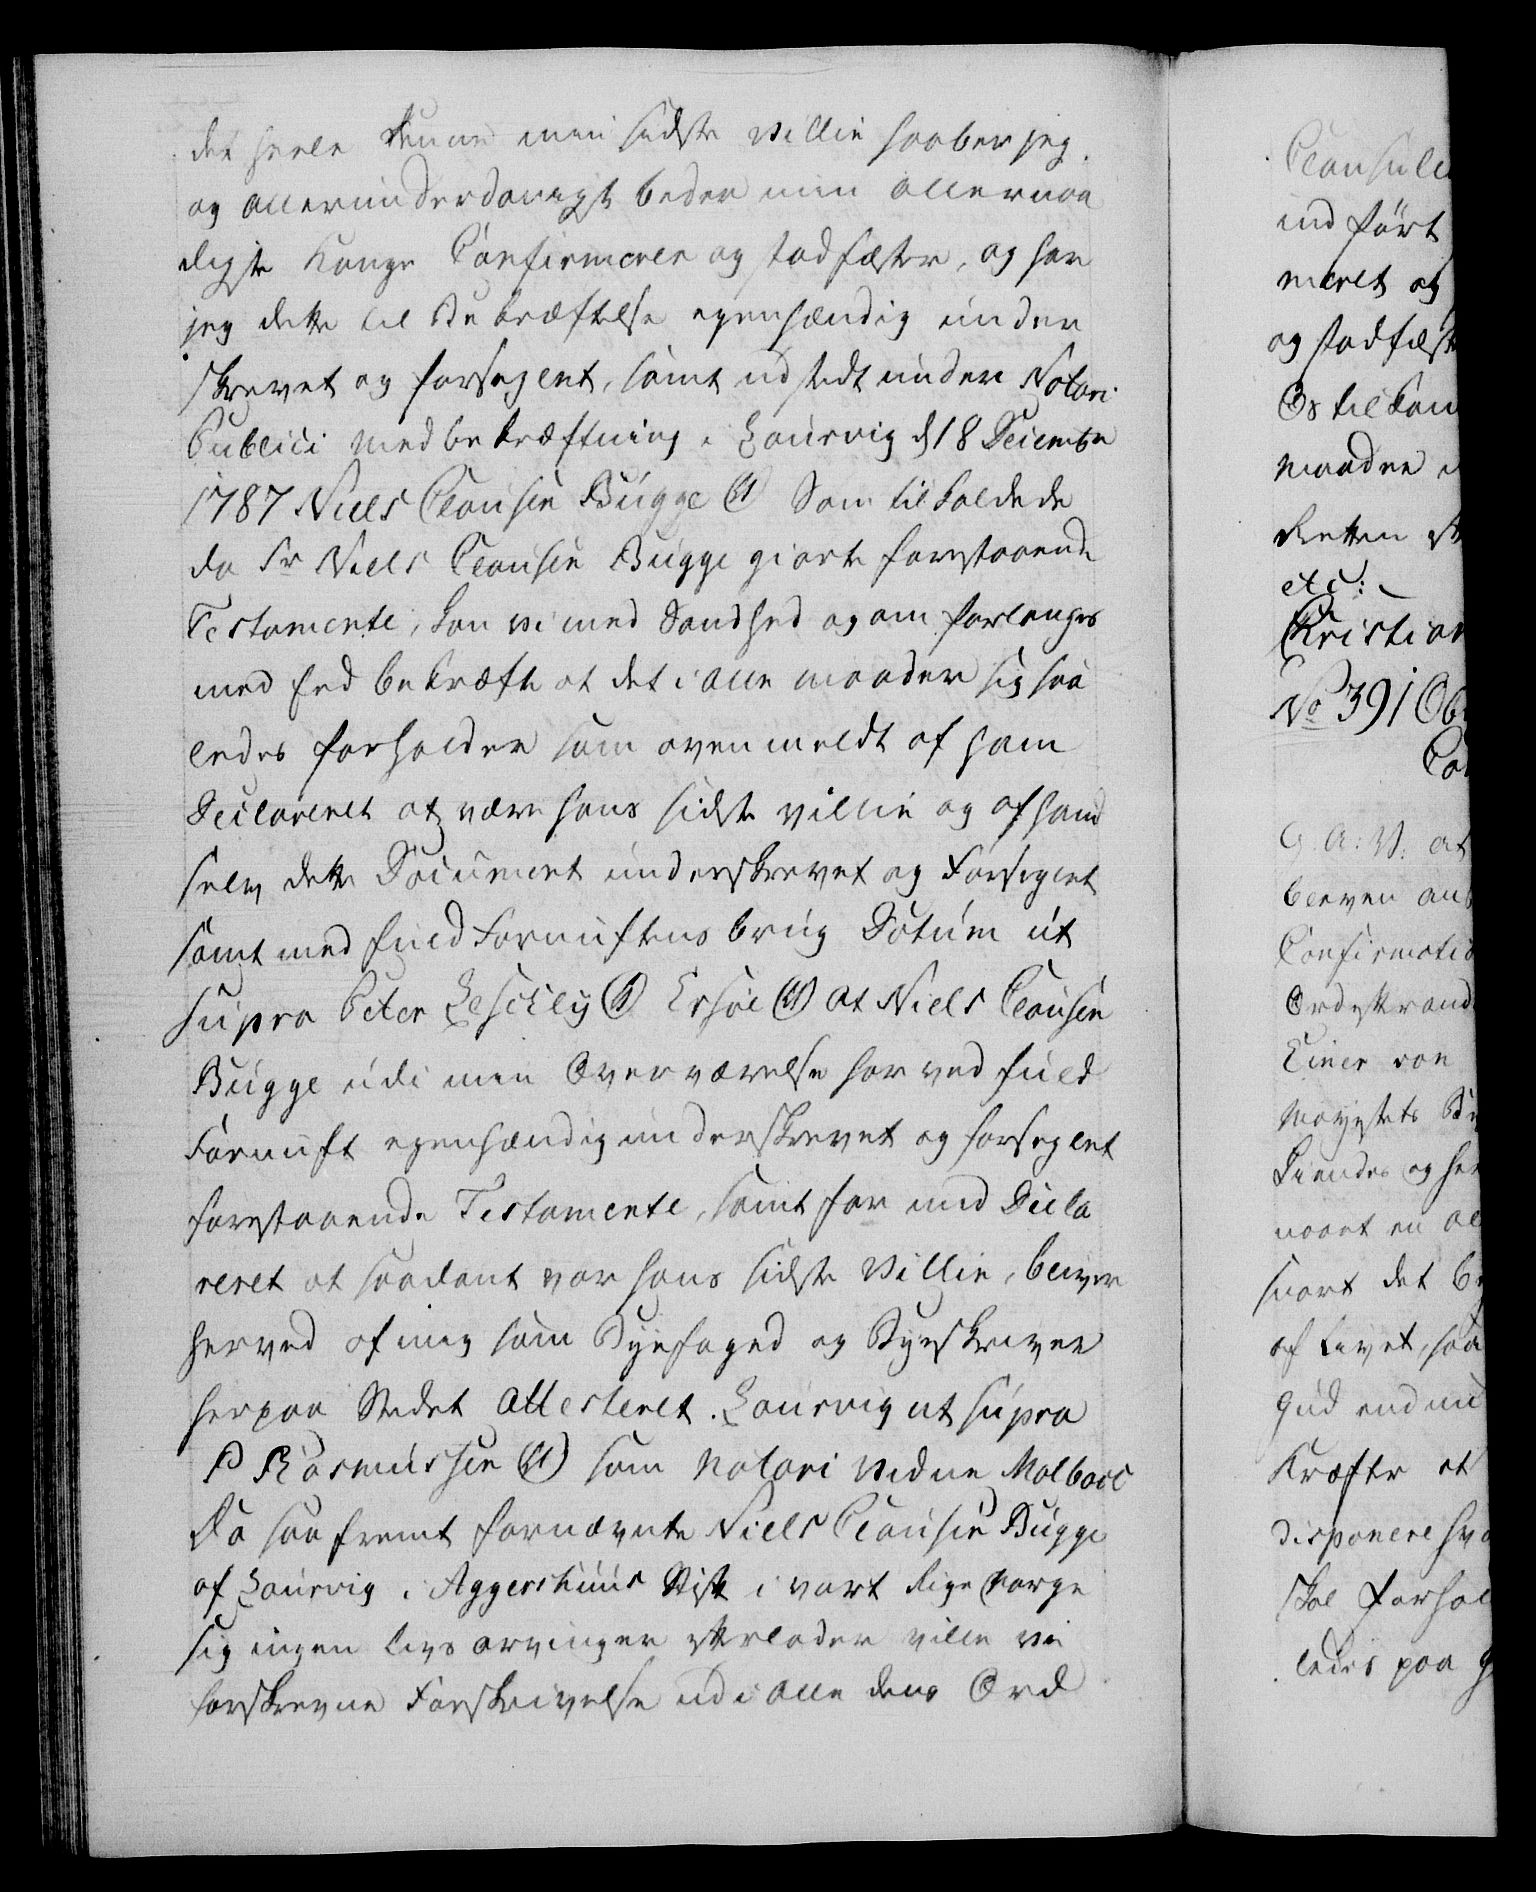 det heele denne min sidste Villie haaber jeg
og allerunderdanigst beder min allernaa
digste Konge Confirmerer og stadfæster, og har
jeg dette til Bekræftelse egenhændig under
skrevet og forseglet, samt udstedt under Notari
Publici Medbekræftning. Laurvig d 18 Decembr
1787 Niels Clausen Bugge (LS) Som tilkaldede
da Sr Niels Clausen Bugge giorte forestaaende
Testamente, kan vi med Sandhed og om forlanges
med Eed bekræfte at det i alle maader sig saa
ledes forholder som ovenmeldt af ham
Declareret at være hans sidste villie og af ham
selv dette Document underskrevet og Forseglet
samt med fuld Fornuftens brug Datum ut
supra Peter Leschly (LS) Ersøe (LS) At Niels Clausen
Bugge udi min Overværelse har ved fuld
Fornuft egenhændig underskrevet og forseglet
forestaaende Testamente, samt for mig Decla
reret at saadant var hans sidste Villie, bliver
herved af mig som Byefoged og Byeskriver
her paa Stedet Attesteret. Laurvig ut supra
P Rasmussen (LS) som Notari
Da saafremt fornævnte Niels Clausen Bugge
af Laurvig i Aggershuus Stift i vort Rige Norge
sig ingen livs arvinger efterlader ville vi
forskrevne Forskrivelse udi alle dens Ord
ind ført
meret og
og stadfæst
Os til kom
maader
Retten
etc:
Christian
No 391 Ob
G. A. V. at
Confirmatio
von
en al
snart det
af Livet, saa
Gud
Kræfter at
disponere hv
skal forhol
ledes paa